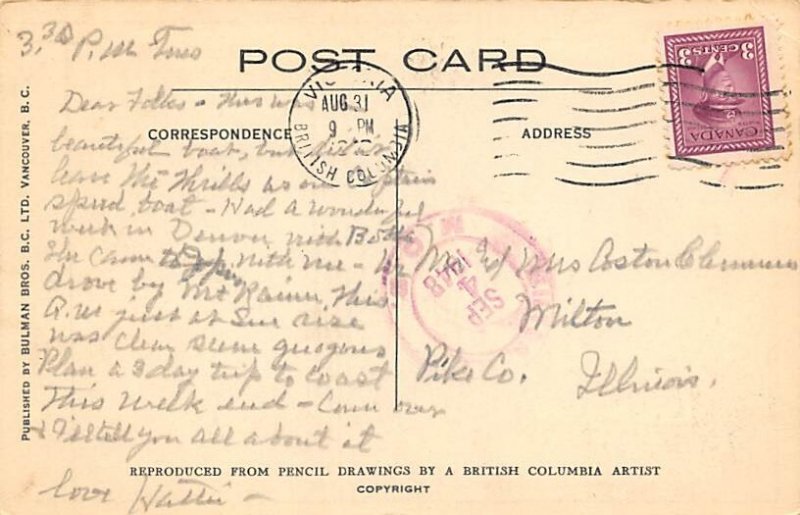 3.30 P.M. Tues
POST CARD
VICTORIA
AUG 31
9 PM
BRITISH COLUMBIA
3 CENTS 3
CANADA
CORRESPONDENCE
ADDRESS
PUBLISHED BY BULMAN BROS. B.C. LTD. VANCOUVER, B.C.
Dear Folks - This was
beautiful boat, but didn't
have the thrills as our
speed boat - Had a wonderful
week in Denver with
She came to with me - We
drove by Mt Rainier this
A.M just at Sun rise
was clear scene
Plan a 3 day trip to coast
This week end - Come over
& I'll tell you all about it
love Hattie -
SEP
4
Mr and Mrs Clemmons
Milton
Pike Co. Illinois.
REPRODUCED FROM PENCIL DRAWINGS BY A BRITISH COLUMBIA ARTIST
COPYRIGHT